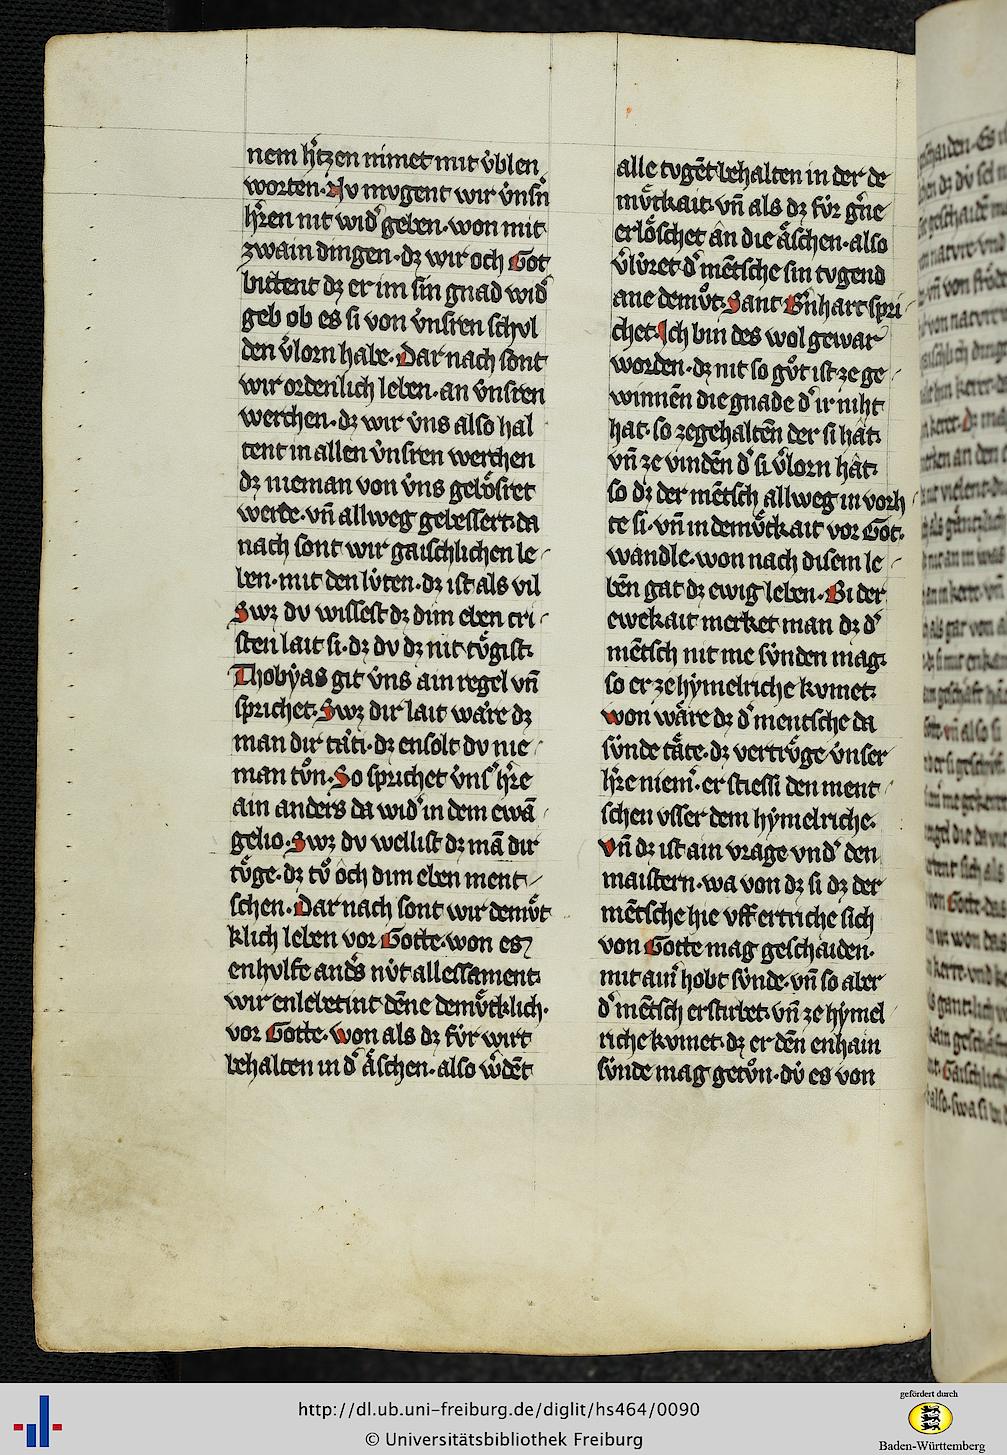 nem hˀtzen nimet mit v̇blen
worten. Nv mvgent wir v̇nsˀn
hˀren nit widˀ geben. won mit
zwain dingen. dz wir och Got
bittent dz er im sin gnad widˀ
geb ob es si von v̇nsren schvl
den v̇lorn habe. Dar nach sont
wir ordenlich leben. an v̇nsren
werchen. dz wir v̇ns also hal
tent in allen v̇nsren werchen
dz nieman von v̇ns gelo̊sret
werde. vn̄ allweg gebessert. da
nach sont wir gaischlichen le
ben. mit den lv̇ten. dz ist als vil
Swz dv wissest dz dim eben cri
sten lait si. dz dv dz nit tv̊gist.
Thobẏas git v̇ns ain regel vn̄
sprichet. Swz dir lait wa̍re dz
man dir ta̍ti. dz ensolt dv nie
man tv̊n. So sprichet v̇nsˀ hˀre
ain anders da widˀ in dem ewā
gelio. Swz dv wellist dz mā dir
tv̊ge. dz tv̊ och dim eben ment
schen. Dar nach sont wir demv̊t
klich leben vor Gotte. won es
enhvlfe andˀs nv̇t allessament.
wir enlebetint dēne demv̊tklich.
vor Gotte. won als dz fv̇r wirt
behalten in dˀ a̍schen. also wˀdēt
alle tvgēt behalten in der de
mv̊tkait. vn̄ als dz fv̇r gˀne
erlo̊schet ân die a̍schen. also
v̇lv̇ret dˀ mētsche sin tvgend
ane demv̊t. Sant Bˀnhart spri
chet. Ich bin des wol gewar
worden. dz nit so gv̊t ist ze ge
winnēn die gnade dˀ ir niht
hat. so ze gehaltēn der si hât.
vn̄ ze vindēn dˀ si v̇lorn hât.
so dz der mētsch allweg in vorh
te si. vn̄ in demv̊tkait vor Got.
wandle. won nach disem le
bēn gat dz ewig leben. Bi der
ewekait merket man dz dˀ
mētsch nit me sv̇nden mag.
so er ze hẏmelriche kvmet.
won wa̍re dz dˀ mentsche da
sv̇nde ta̍te. dz vertrv̊ge v̇nser
hˀre niemˀ. er stiessi den ment
schen vsser dem hẏmelriche.
vn̄ dz ist ain vrage vndˀ den
maistern. wa von dz si dz der
mētsche hie vff ertriche sich
von Gotte mag geschaiden.
mit ainˀ hobt sv̇nde. vn̄ so aber
dˀ mētsch erstirbet. vn̄ ze hẏmel
riche kvmet. dz er dēn enhain
sv̇nde mag getv̊n. dv̇ es von
http://dl.ub.uni-freiburg.de/diglit/hs464/0090
© Universitätsbibliothek Freiburg
gefördert durch
Baden-Württemberg